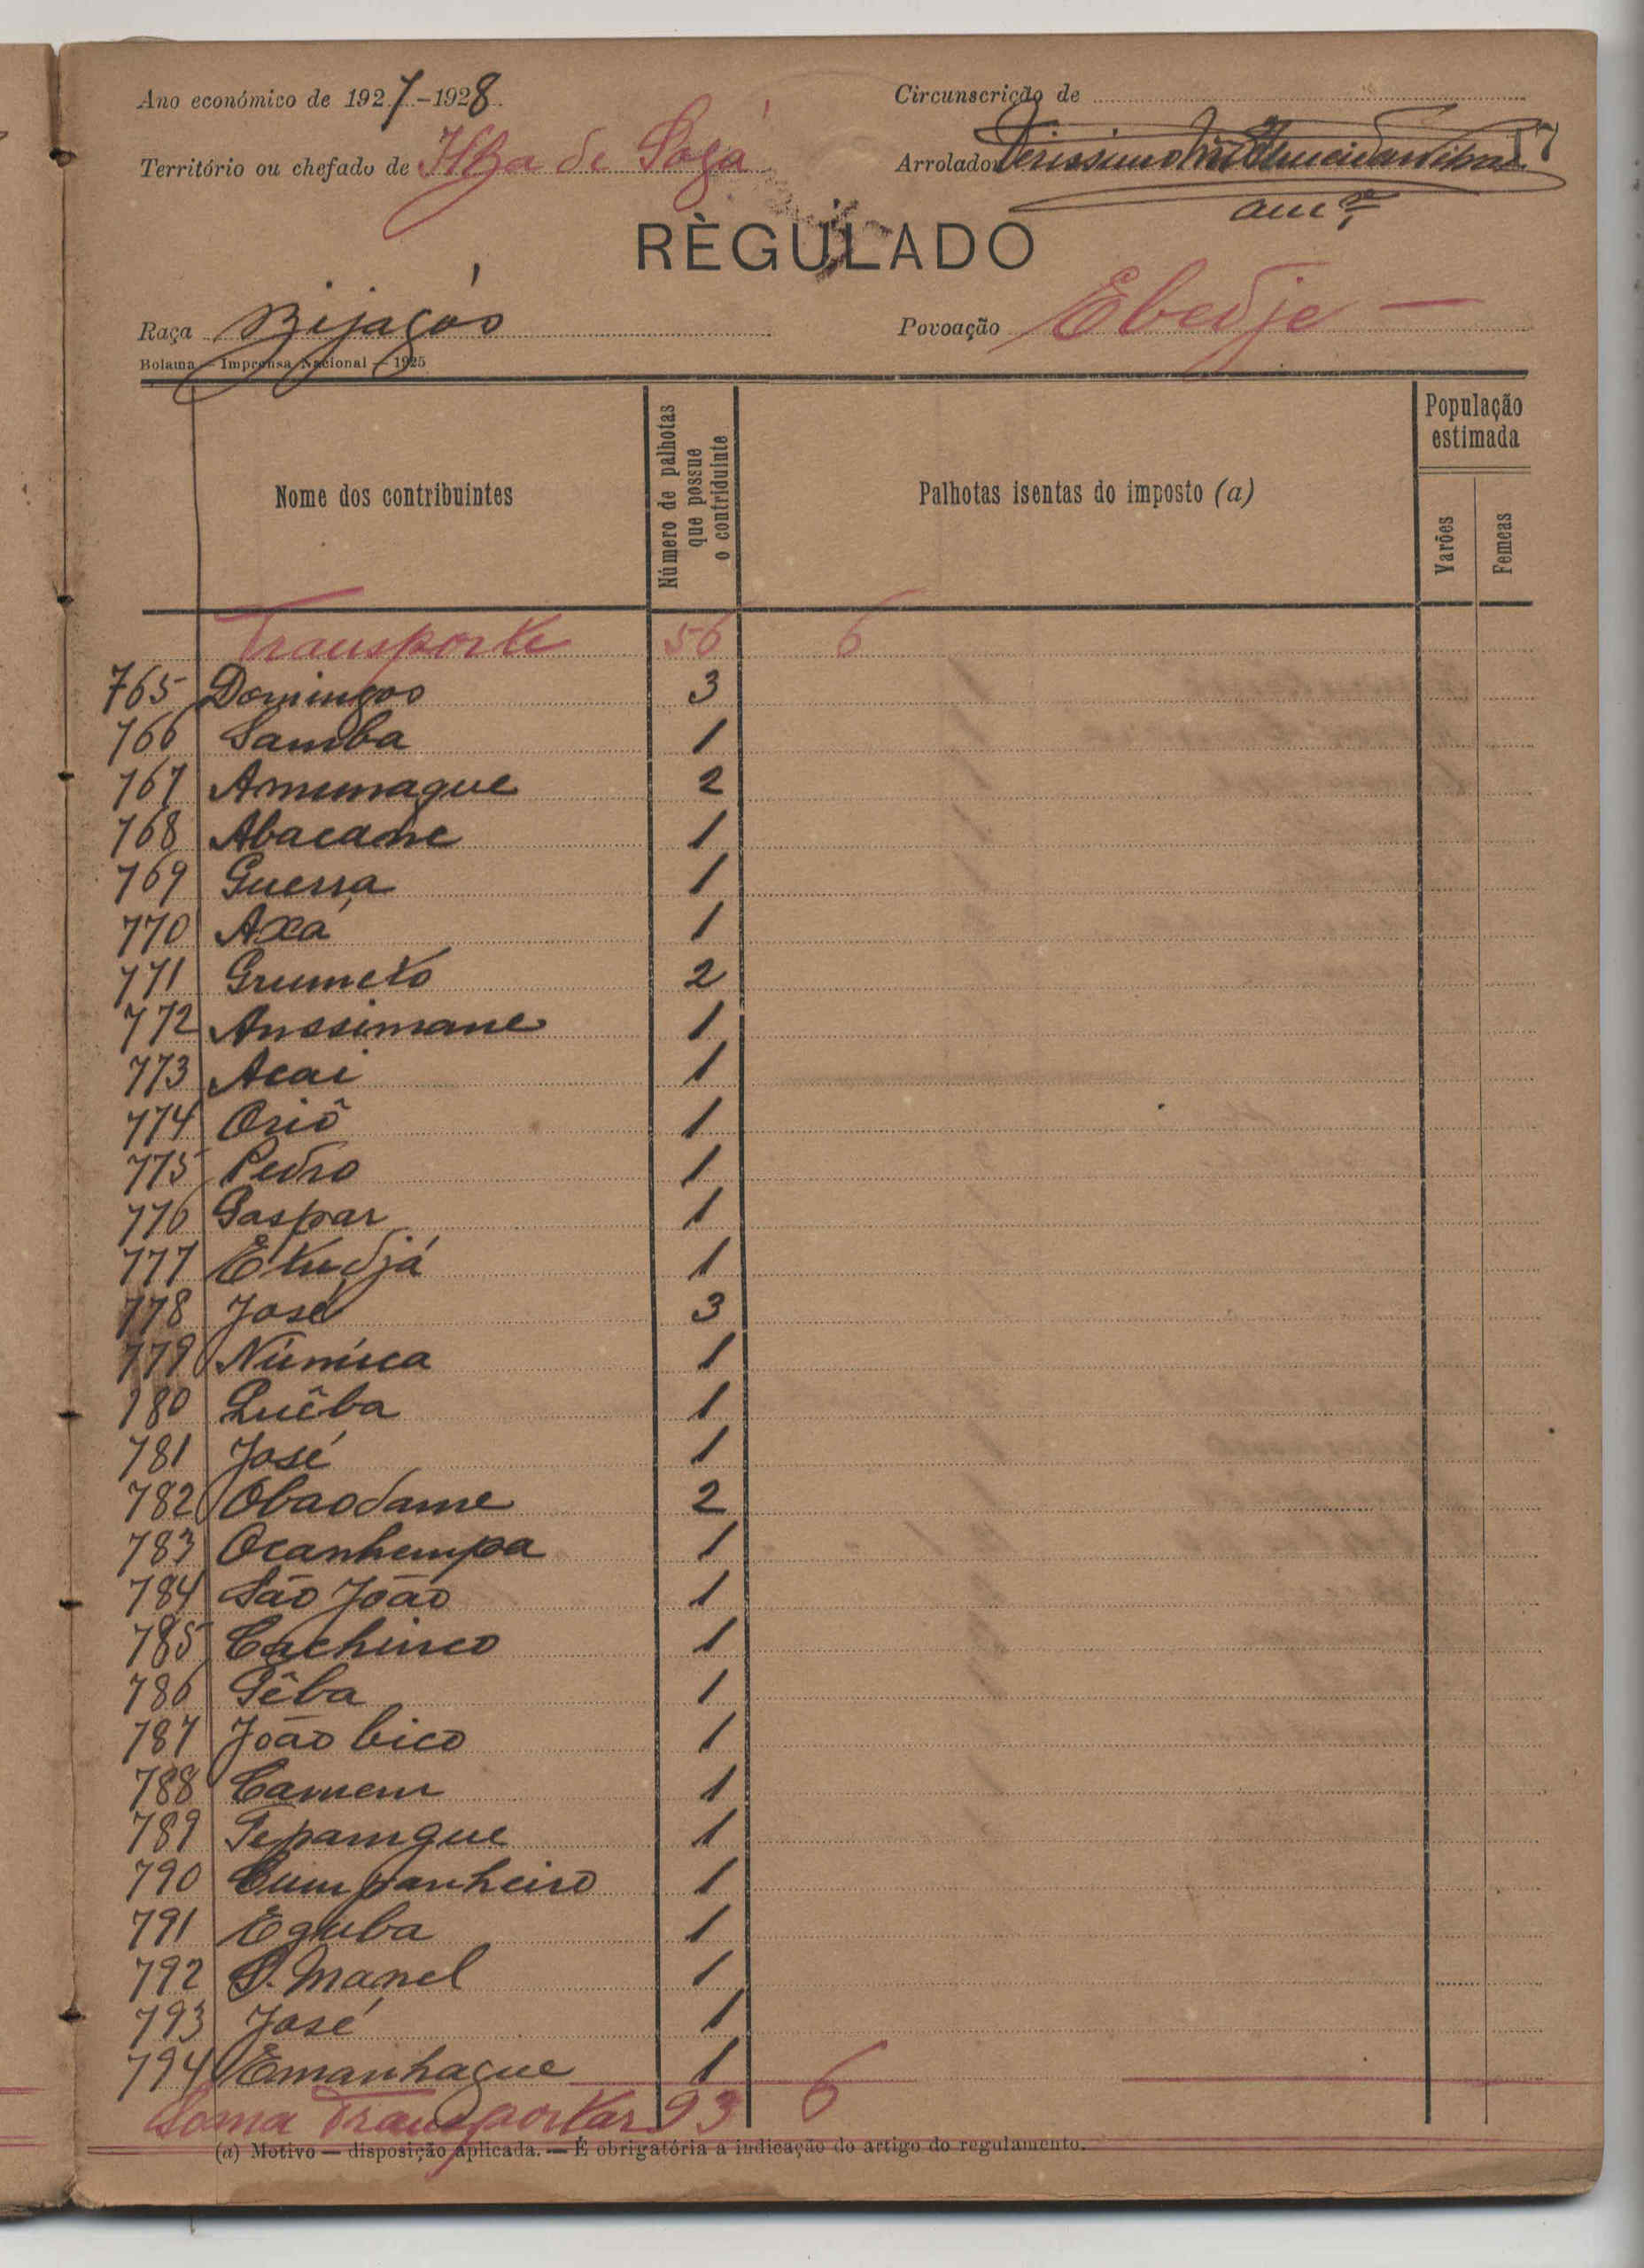 Ano económico de 1927-1928
Circunscrição de
17
Território ou chefado de Ilha de Sogá
Arrolador
REGULADO
Raça Bijagós
Povoação Ebedje —
Bolama — Imprensa Nacional — 1925
Nome dos contribuintes
Número de palhotas que possue o contriduinte
Palhotas isentas do imposto (a)
População estimada
Varões
Femeas
Transporte 56 6
765 Domingos 3
766 Samba 1
767 Amunague 2
768 Abacane 1
769 Guerra 1
770 Axá 1
771 Grumeto 2
772 Anssimane 1
773 Acai 1
774 Oriô 1
775 Pedro 1
776 Gaspar 1
777 Etudjá 1
778 José 3
779 Númica 1
780 Quêba 1
781 José 1
782 Obaodame 2
783 Ocanhempa 1
784 São João 1
785 Cachinco 1
786 Pêba 1
787 João bico 1
788 Camem 1
789 Pepamgue 1
790 Cumpanheiro 1
791 Eguba 1
792 S. Manel 1
793 José 1
794 Emanhague 1
Soma Transportar 93 6
(a) Motivo — disposição aplicada. — É obrigatória a indicação do artigo do regulamento.